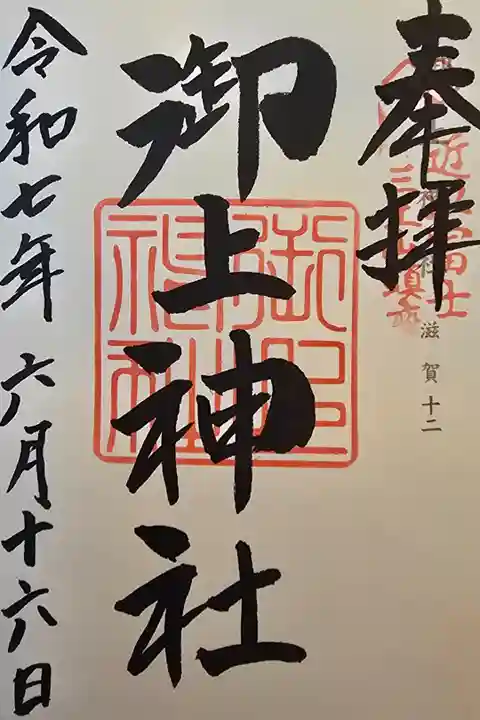 奉拝
近江富士
滋賀十二
御上神社
令和七年 六月十六日